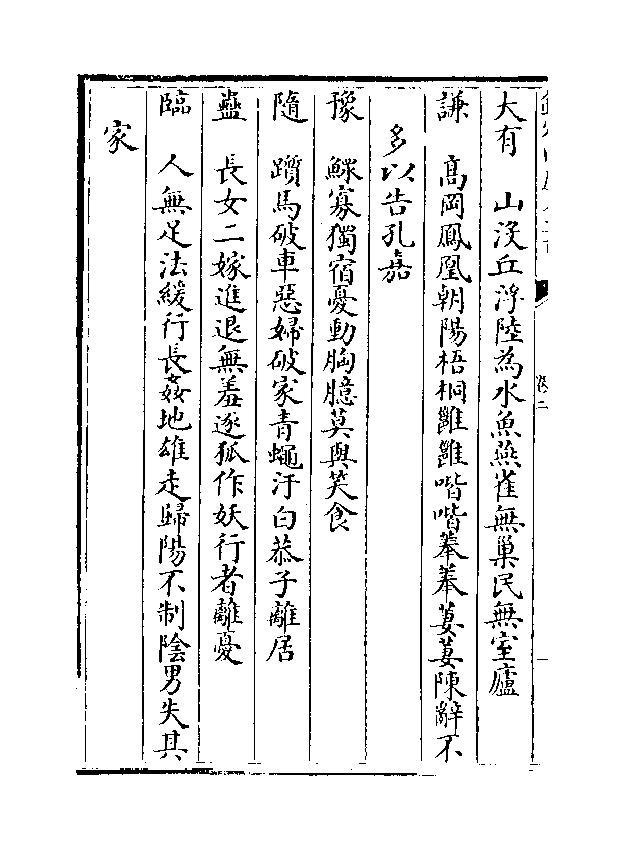 卷二
大有　山沒丘浮陸為水魚燕雀無巢民無室廬
謙　髙岡鳳凰朝陽梧桐雝雝喈喈菶菶萋萋陳辭不
多以告孔嘉
豫　鰥寡獨宿憂動胸臆莫與笑食
隨　躓馬破車惡婦破家青蠅汙白恭子離居
蠱　長女二嫁進退無羞逐狐作妖行者離憂
臨　人無足法緩行長姦地雄走歸陽不制陰男失其
家